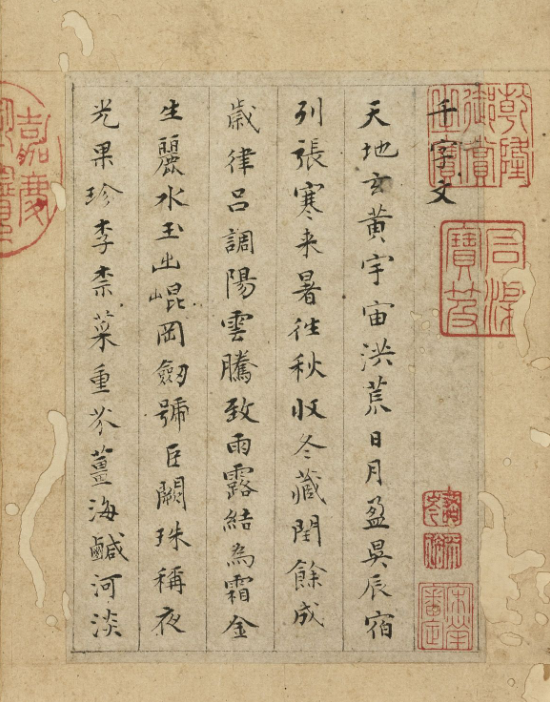 千字文
天地玄黃宇宙洪荒日月盈昃辰宿
列張寒来暑往秋收冬藏閏餘成
歲律呂調陽雲騰致雨露結為霜金
生麗水玉出崐岡劔號巨闕珠稱夜
光果珍李柰菜重芥薑海鹹河淡
乾隆御賞之寶
嘉慶御覽之寶